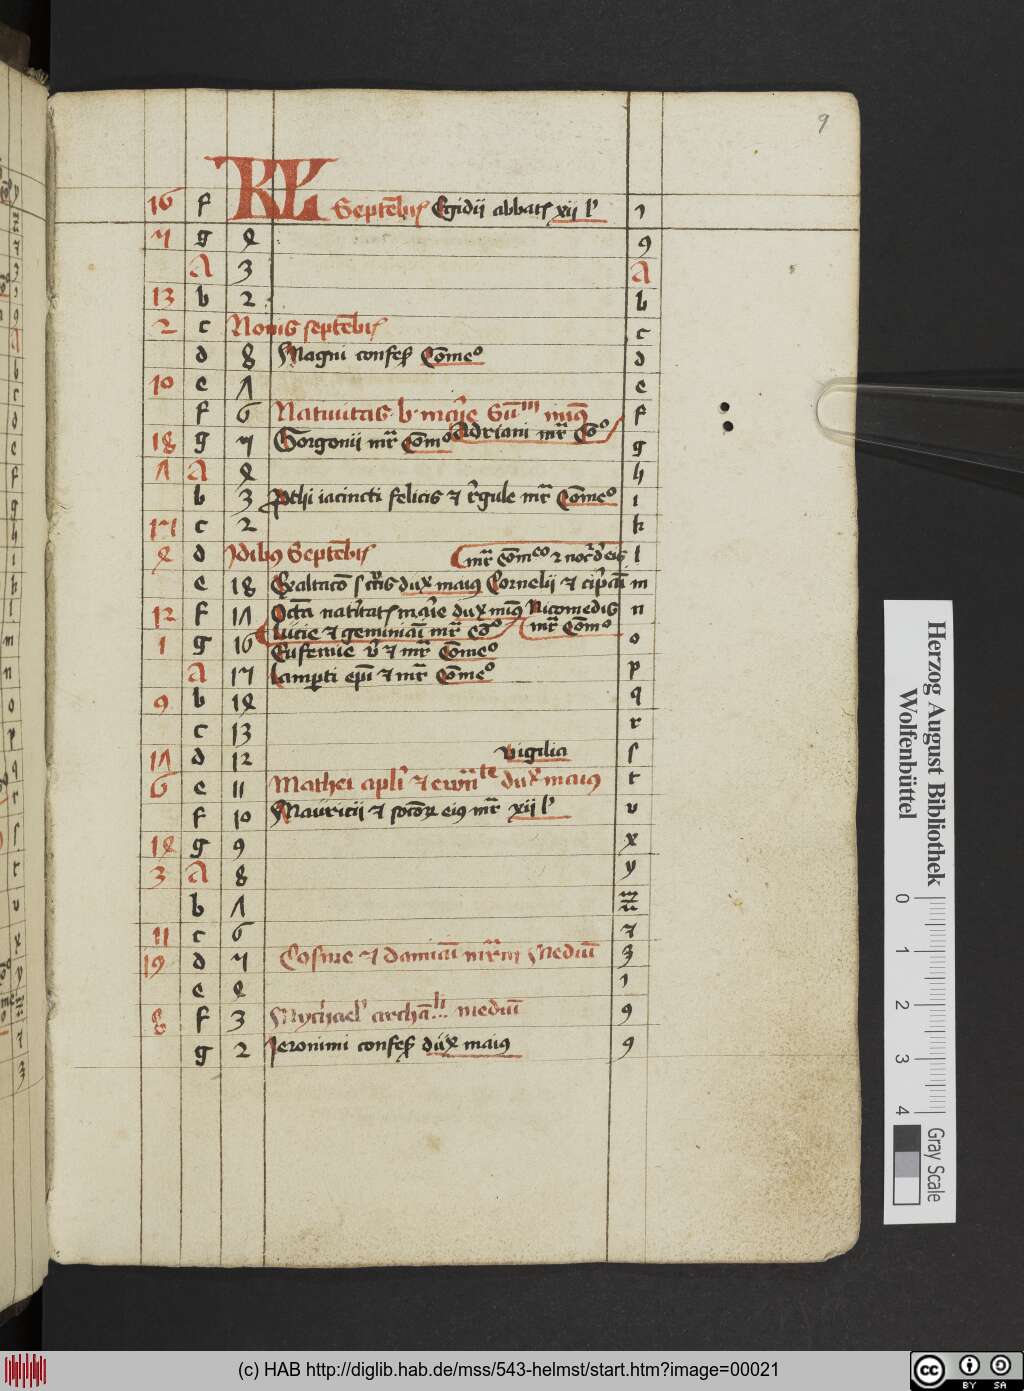 9
16 f KL Septēbris Egidii abbatis xij l' 1
5 g 4 9
A 3 A
13 b 2 b
2 c Nonis septēbris c
d 8 Magni confeß Cōmeo d
10 e 7 e
f 6 Natiuitas b. marie Sūm maius f
18 g 5 Gorgonii mr̄ Cōmo Adriani mr̄ Cōo g
7 A 4 h
b 3 Prothi iacincti felicis et regule mr̄ Cōmeo i
15 c 2 k
4 d Idibus Septēbris mr̄ Cōmeo l
e 18 Exaltacō sctē crucis dux maius Cornelii et cipriāi m
12 f 17 Octā natiuitatis marie dux maius Nicomedis n
1 g 16 lucie et geminiāi mr̄ Cōo mr̄ Cōmo o
Eufemie v' et mr̄ Cōmeo
A 15 lamperti epī et mr̄ Cōmeo p
9 b 14 q
c 13 r
17 d 12 vigilia s
6 e 11 Mathei apli et ewāte dux maius t
f 10 Mauricii et socior eius mr̄ xij l' v
14 g 9 x
3 A 8 y
b 7 z
11 c 6 7
19 d 5 Cosme et damiāi mr̄m Mediū 3
e 4 1
8 f 3 Mychael' archāli mediū 9
g 2 Ieronimi confeß dux maius 9
Herzog August Bibliothek
Wolfenbüttel
0 1 2 3 4
Gray Scale
(c) HAB http://diglib.hab.de/mss/543-helmst/start.htm?image=00021
cc BY SA